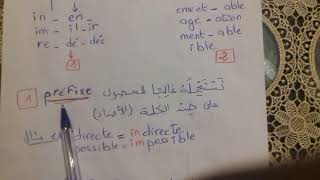 in _ en _
im _ il _ ir
re _ dé _ dés
1
ement _ able
age _ ation
ment _ able
ible
2
1 préfixe
غالبا للحصول
على الكلمة
directe = in directe
possible = im possible